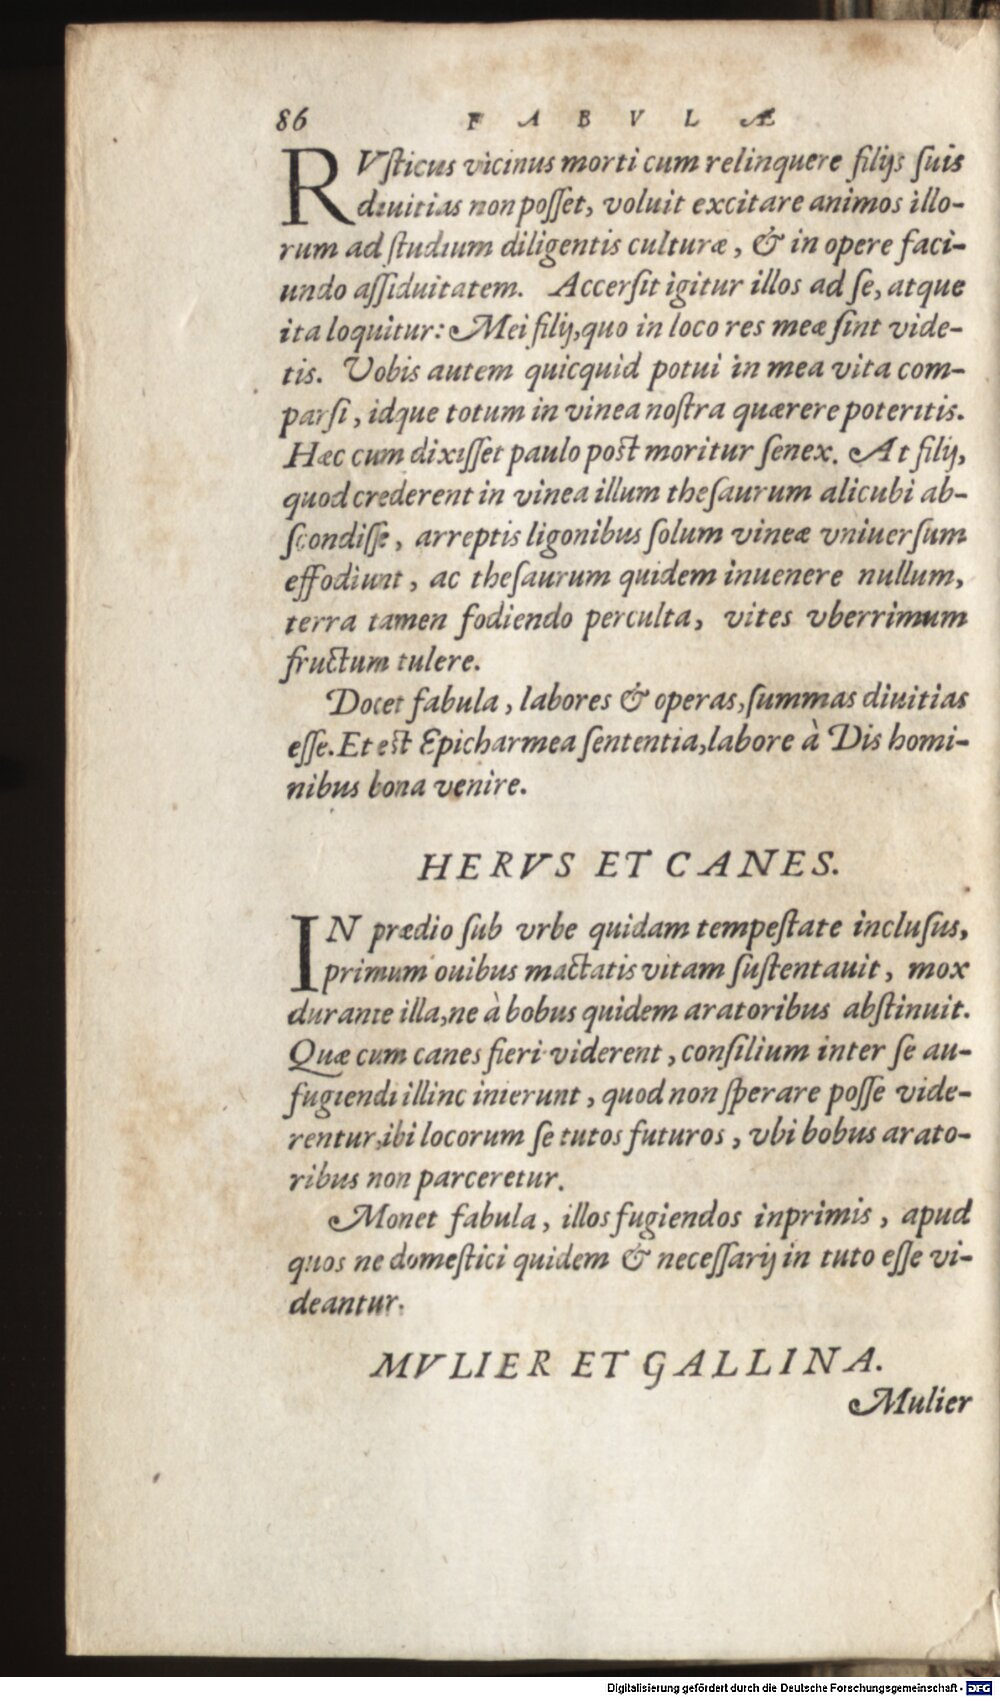 86 FABVLÆ
RVſticus vicinus morti cum relinquere filijs ſuis
diuitias non poſſet, voluit excitare animos illo-
rum ad ſtudium diligentis culturæ, & in opere faci-
undo aſſiduitatem. Accerſit igitur illos ad ſe, atque
ita loquitur: Mei filij, quo in loco res meæ ſint vide-
tis. Vobis autem quicquid potui in mea vita com-
parſi, idque totum in vinea noſtra quærere poteritis.
Hæc cum dixiſſet paulo poſt moritur ſenex. At filij,
quod crederent in vinea illum theſaurum alicubi ab-
ſcondiſſe, arreptis ligonibus ſolum vineæ vniuerſum
effodiunt, ac theſaurum quidem inuenere nullum,
terra tamen fodiendo perculta, vites vberrimum
fructum tulere.
Docet fabula, labores & operas, ſummas diuitias
eſſe. Et eſt Epicharmea ſententia, labore à Dis homi-
nibus bona venire.
HERVS ET CANES.
IN prædio ſub vrbe quidam tempeſtate incluſus,
primum ouibus mactatis vitam ſuſtentauit, mox
durante illa, ne à bobus quidem aratoribus abſtinuit.
Quæ cum canes fieri viderent, conſilium inter ſe au-
fugiendi illinc inierunt, quod non ſperare poſſe vide-
rentur, ibi locorum ſe tutos futuros, vbi bobus arato-
ribus non parceretur.
Monet fabula, illos fugiendos inprimis, apud
quos ne domeſtici quidem & neceſſarij in tuto eſſe vi-
deantur.
MVLIER ET GALLINA.
Mulier
Digitalisierung gefördert durch die Deutsche Forschungsgemeinschaft - DFG